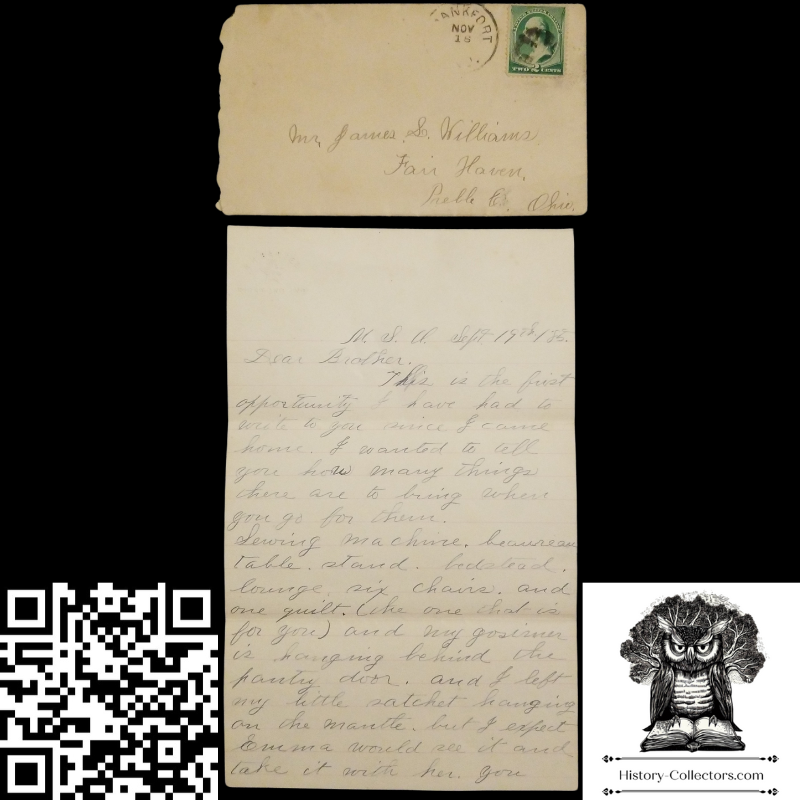 ANKFORT
NOV
18
TWO 2 CENTS
Mr. James. S. Williams
Fair Haven.
Preble Co. Ohio.
M. S. U. Sept 19th/85.
Dear Brother.
This is the first
opportunity I have had to
write to you since I came
home. I wanted to tell
you how many things
there are to bring when
you go for them.
Sewing machine. beaureau
table. stand. bedstead.
lounge. six chairs. and
one quilt. (the one that is
for you) and my gosimer
is hanging behind the
pantry door. and I left
my little satchet hanging
on the mantle. but I expect
Emma would see it and
take it with her. you
History-Collectors.com